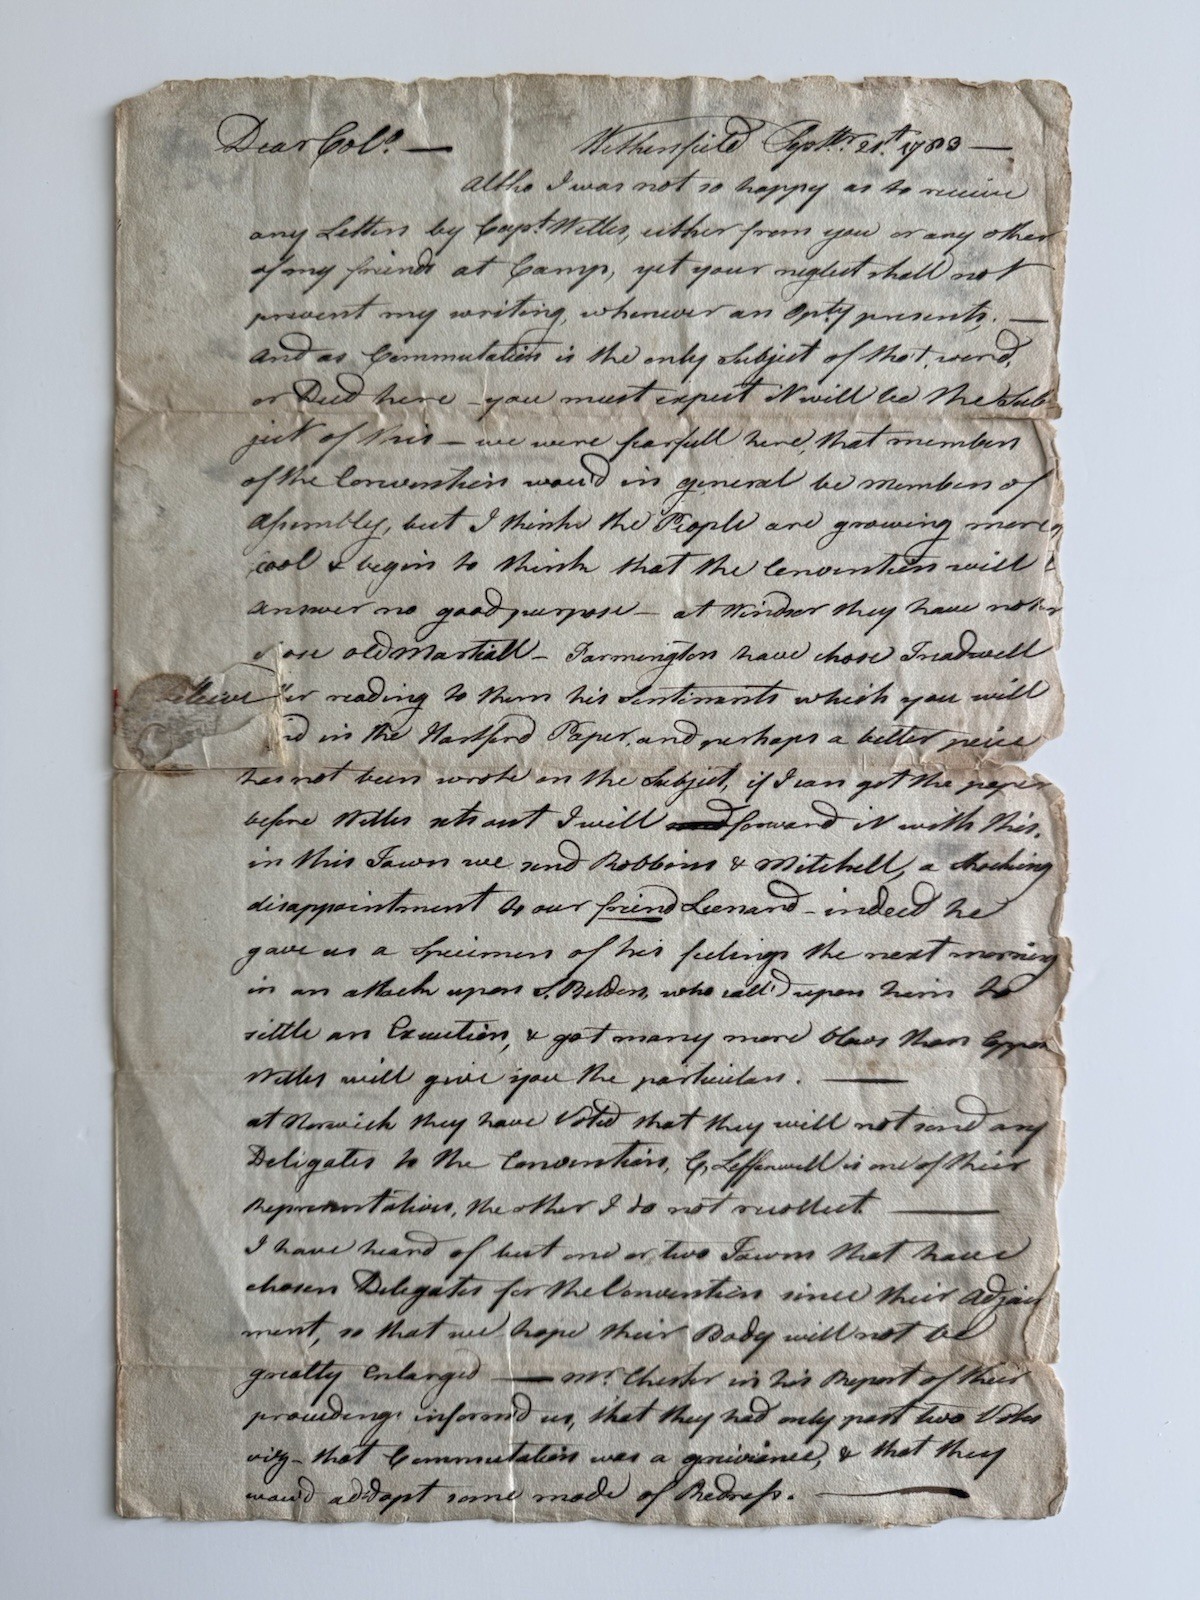 Dear Colo. — Wethersfield Septr. 21st. 1783 —
Altho I was not so happy as to receive
any Letters by Capt. Willes, either from you or any other
of my friends at Camp, yet your neglect shall not
prevent my writing, whenever an Opty presents. —
And as Commutation is the only Subject of thot, word,
or Deed here — you must expect it will be the Sub-
ject of this — we were fearfull here, that members
of the Convention wou'd in general be members of
Assembly, but I think the People are growing more
cool & begin to think that the Convention will
answer no good purpose — at Windsor they have not
ose old Martiall — Farmington have chose Treadwell
er reading to them his Sentiments which you will
d in the Hartford Paper, and perhaps a better peice
has not been wrote on the Subject, if I can get the paper
before Willes sets out I will forward it with this.
in this Town we send Robbins & Mitchell, a shocking
disappointment to our friend Leonard — indeed he
gave us a Specimen of his feelings the next morning
in an attack upon S. Belden, who call'd upon him to
settle an Execution, & got many more blows than
Willes will give you the particulars. —
at Norwich they have Voted that they will not send any
Deligates to the Convention, C, Leffenwell is one of their
Representatives, the other I do not recollect. —
I have heard of but one or two Towns that have
chosen Delegates for the Convention since their Adjou
ment, so that we hope their Body will not be
greatly Enlarged — Mr. Chester in his Report of their
proceedings inform'd us, that they had only past two Votes
viz — that Commutation was a greivience, & that they
wou'd addopt some mode of Redress. —